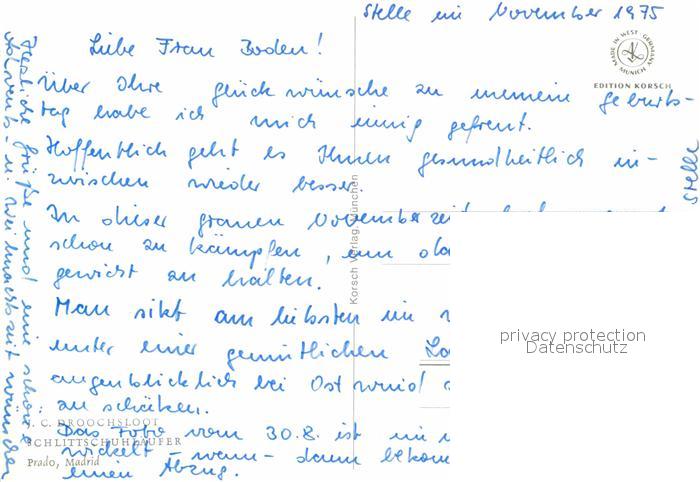 Stelle im November 1975
Liebe Frau Boden!
Über Ihre glückwünsche zu meinem geburts-
tag habe ich mich innig gefreut.
Hoffentlich geht es Ihnen gesundheitlich in-
zwischen wieder besser.
In dieser grauen Novemberzeit
schon zu kämpfen, um das
gewicht zu halten.
Man sitzt am liebsten im
unter einer gemütlichen
augenblicklich bei Ostwind
zu schätzen.
Das Foto vom 30.8. ist
wickelt – wenn – dann
einen Abzug.
Herzliche grüße und eine schöne
Advents- u. Weihnachtszeit wünschen
Stelle
MADE IN WEST-GERMANY MUNICH
EDITION KORSCH
Korsch Verlag, München
J. C. DROOCHSLOOT
SCHLITTSCHUHLÄUFER
Prado, Madrid
privacy protection
Datenschutz